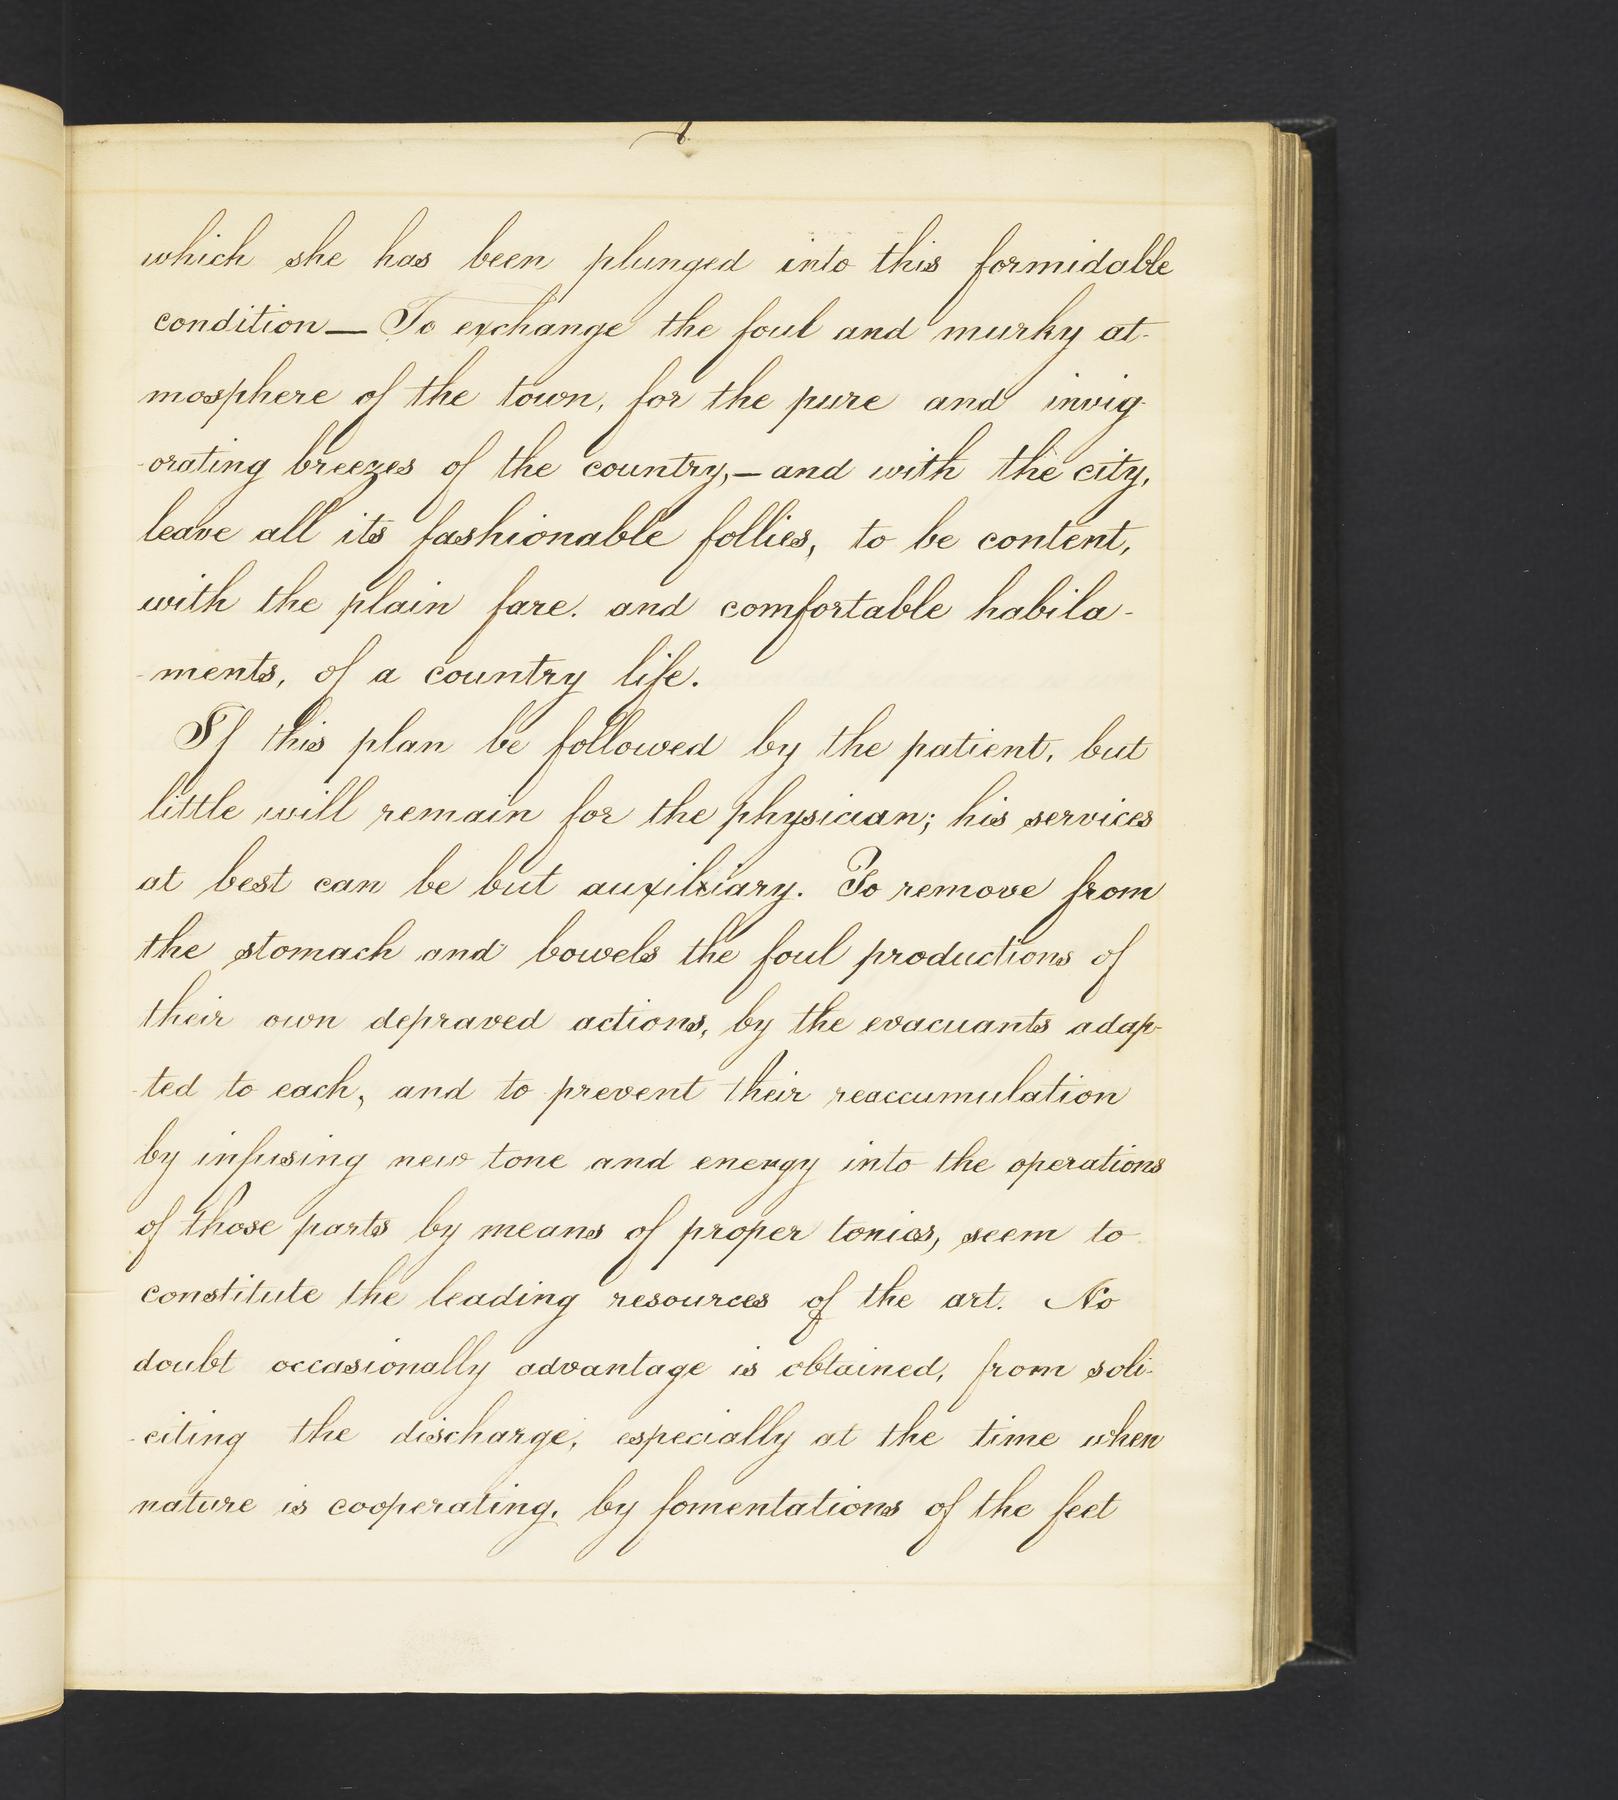 which she has been plunged into this formidable
condition — To exchange the foul and murky at-
mosphere of the town, for the pure and invig-
-orating breezes of the country, — and with the city,
leave all its fashionable follies, to be content,
with the plain fare. and comfortable habila-
-ments, of a country life.
If this plan be followed by the patient, but
little will remain for the physician; his services
at best can be but auxiliary. To remove from
the stomach and bowels the foul productions of
their own depraved actions, by the evacuants adap-
-ted to each, and to prevent their reaccumulation
by infusing new tone and energy into the operations
of those parts by means of proper tonics, seem to
constitute the leading resources of the art. No
doubt occasionally advantage is obtained, from soli-
-citing the discharge, especially at the time when
nature is cooperating, by fomentations of the feet